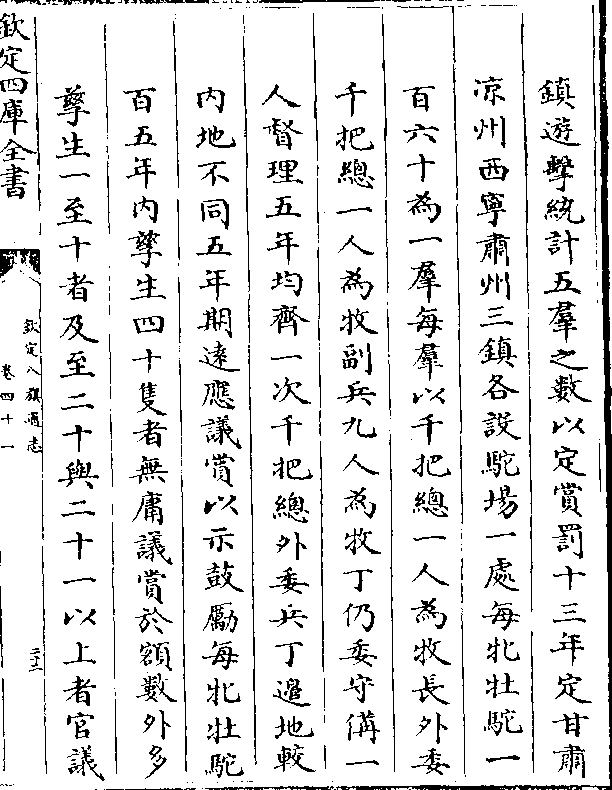 鎮遊擊統計五羣之數以定賞罰十三年定甘肅
凉州西寧肅州三鎮各設駝場一處每牝牡駝一
百六十為一羣每羣以千把總一人為牧長外委
千把總一人為牧副兵九人為牧丁仍委守備一
人督理五年均齊一次千把總外委兵丁邉地較
内地不同五年期逺應議賞以示鼓勵每牝牡駝
百五年内孳生四十隻者無庸議賞於額數外多
孳生一至十者及至二十與二十一以上者官議
欽定四庫全書
欽定八旗通志
卷四十一
二十二